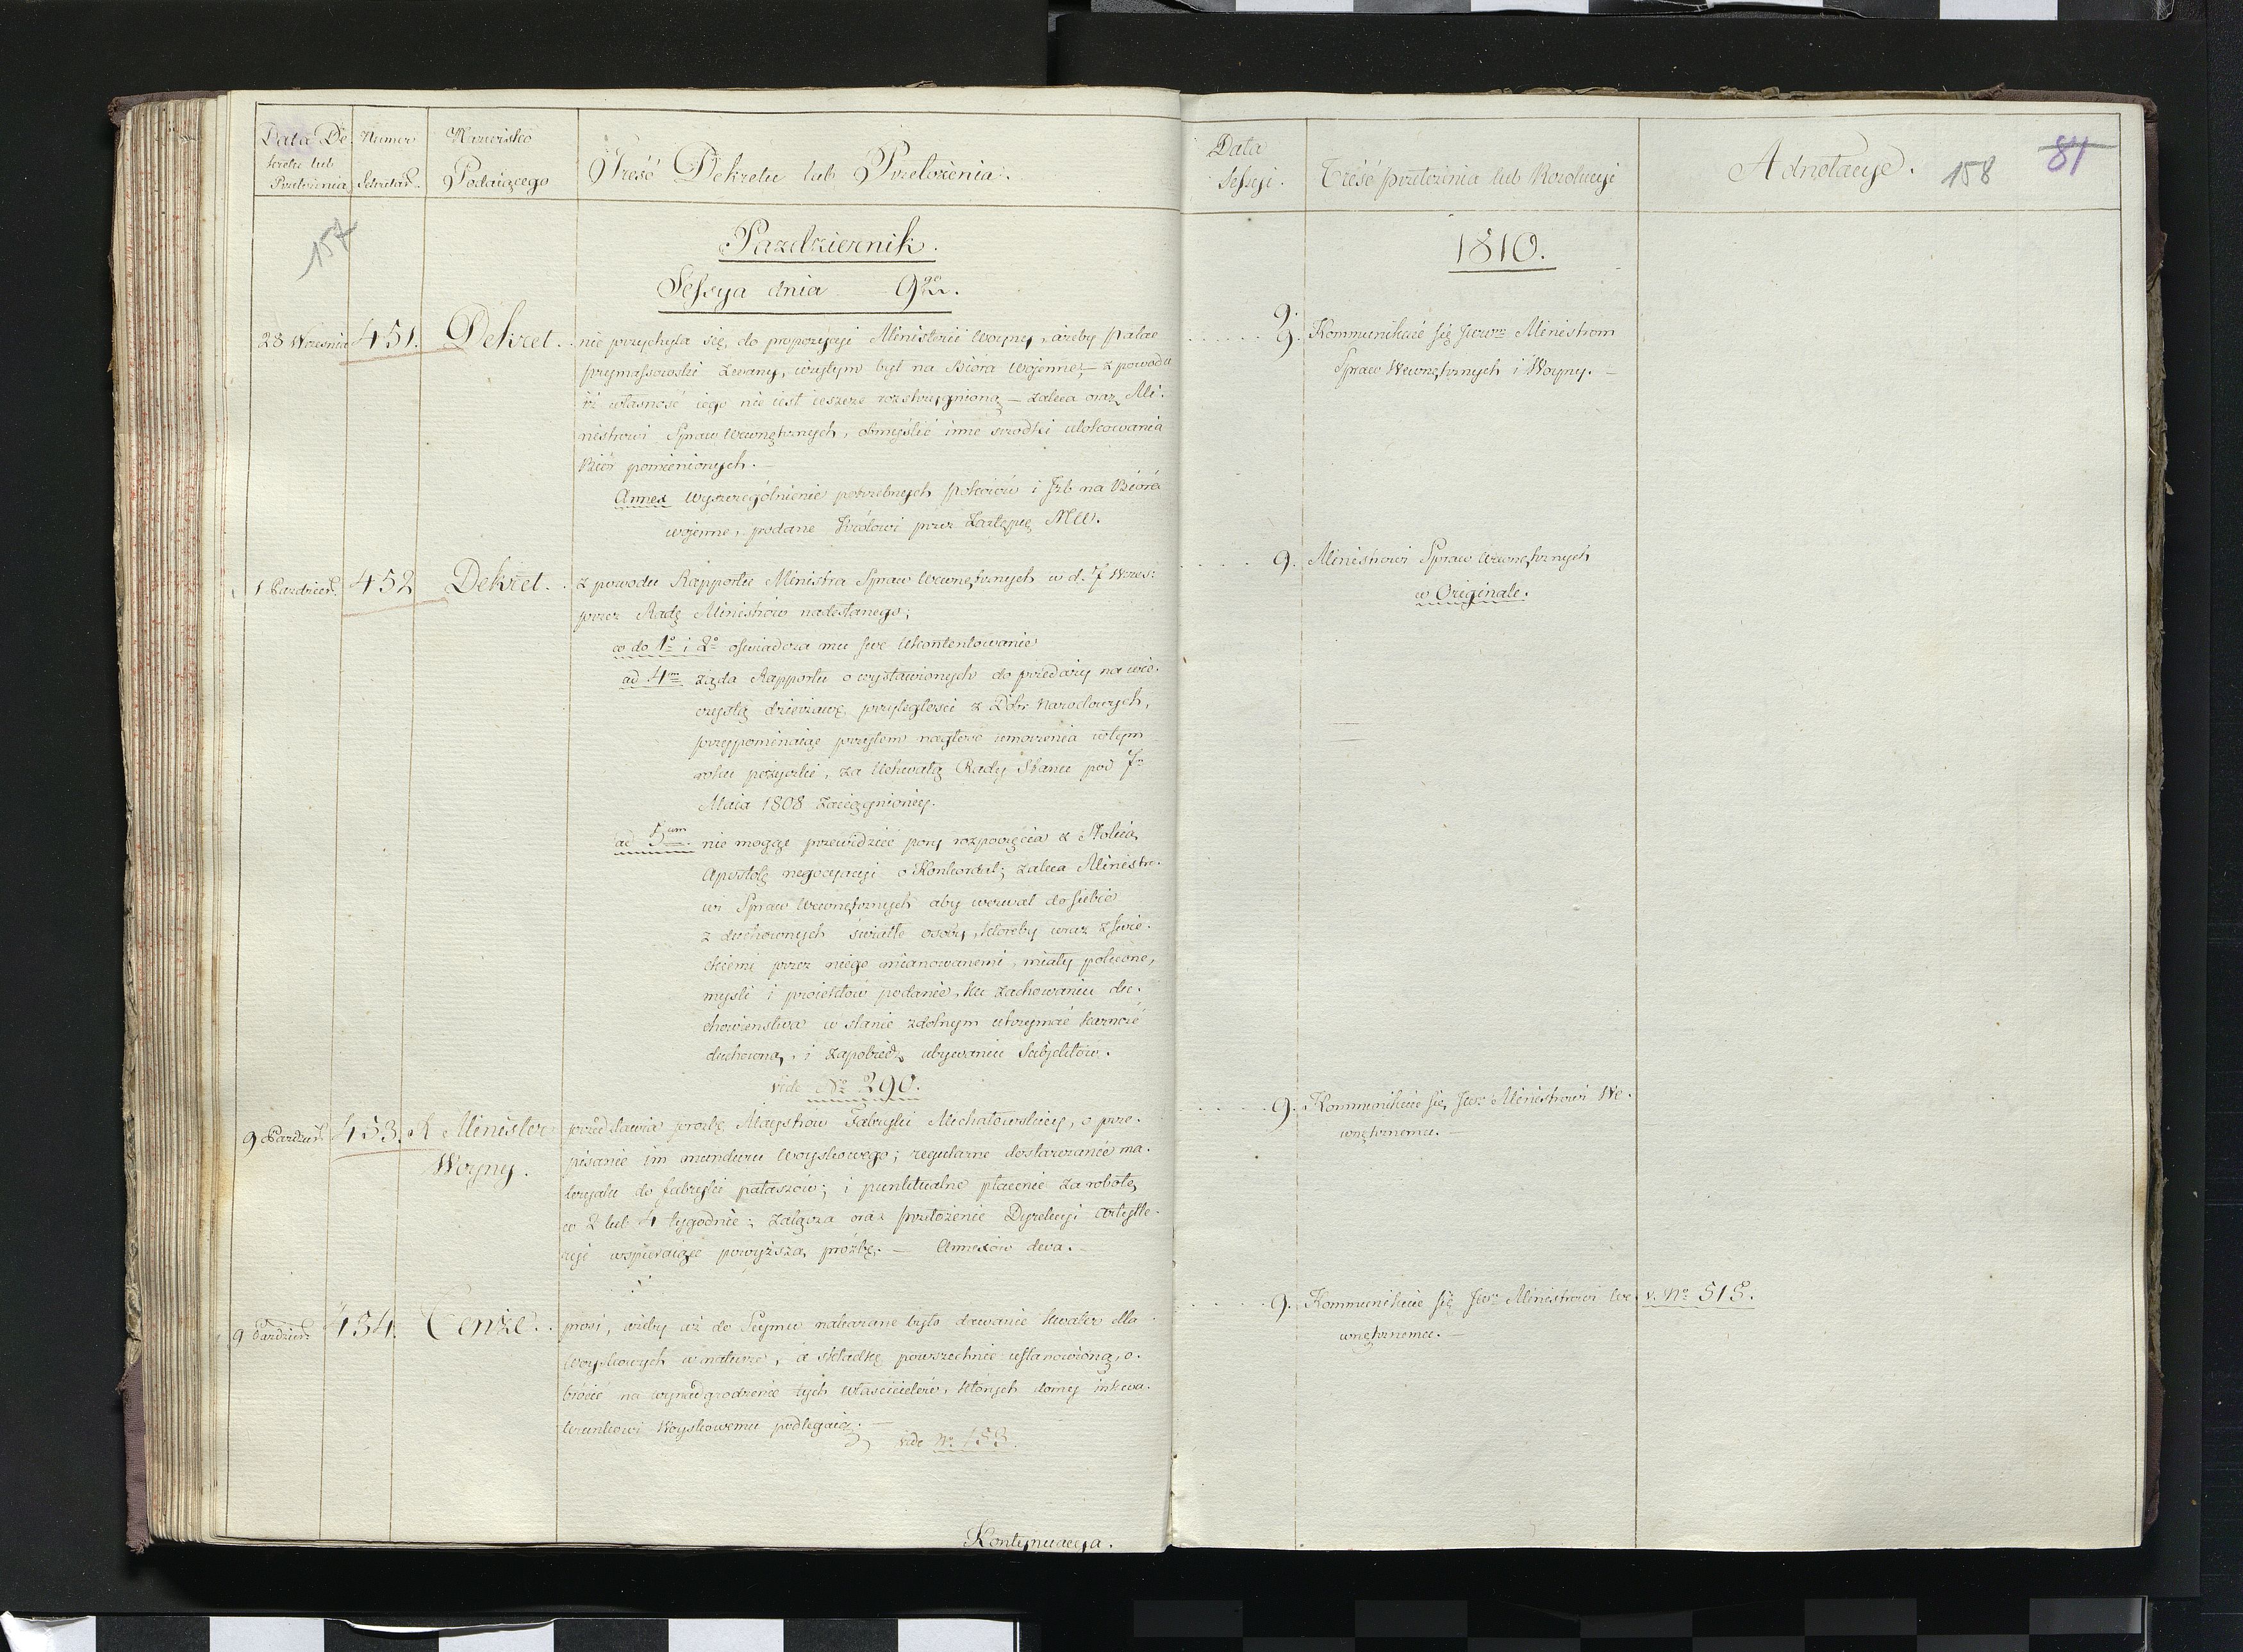 Data De
kretu lub
Przełożenia
Numer
Sekretar.
Nazwisko
Podaiącego
Treść Dekretu lub Przełożenia.
157
Pazdziernik.
Sessya dnia 9go.
28 Wrzesnia 451. Dekret. nie przychyla się do propozycyi Ministerii Woyny, ażeby pałac
prymassowski zwany, wziętym był na Biora wojenne, — z powodu
iż własność iego nie iest ieszcze rozstrzygnioną — zaleca oraz Mi-
nistrowi Spraw Wewnętrznych, obmyślić inne srzodki ulokowania
Biór pomienionych. —
Annex wyszczególnienie potrzebnych pokoiów i Izb na Bióra
wojenne, podane Królowi przez Zastępcę MW.
1 Pazdzier. 452 Dekret. z powodu Rapportu Ministra Spraw Wewnętrznych w d. 7 Wrzes:
przez Radę Ministrów nadesłanego;
co do 1o i 2o oświadcza mu swe ukontentowanie
ad 4um żąda Rapportu o wystawionych do przedaży na wie-
czystą dzierżawę, przyległości z Dóbr Narodowych,
przypominaiąc przytem nagłość umorzenia w tym
roku pożyczki, za Uchwałą Rady Stanu pod 7m
Maia 1808 zaciągnioney.
ad 5um nie mogąc przewidzieć pory rozpoczęcia z Stolicą
Apostolą negocyacyi o Konkordat; zaleca Ministro-
wi Spraw Wewnętrznych aby wezwał do siebie
z duchownych światłe osoby, któreby wraz z świe-
ckiemi przez niego mianowanemi, miały polecone,
mysli i proiektów podanie, ku zachowaniu du-
chowienstwa w stanie zdolnym utrzymać karność
duchowną, i zapobiedz ubywaniu Subjektów.
vide No 290.
9 Pazdzier. 453. K Minister
Woyny.
przedstawia prozbę Maystrów Fabryki Michałowskiey, o prze-
pisanie im munduru Woyskowego; regularne dostarczanie ma-
teryału do fabryki pałaszów; i punktualne płacenie za robotę
co 2 lub 4 tygodnie; załącza oraz przełożenie Dyrekcyi Artylle-
ryi wspieraiące powyższą prozbę. — Annexów dwa.
9 Pazdzier. 454. Tenże. prosi, ażeby aż do Seymu nakazane było dawanie kwater dla
Woyskowych w naturze, a składkę powszechnie ustanowioną, o-
brócić na wynadgrodzenie tych właścicielów, których domy inkwa-
terunkowi Woyskowemu podlegaią. —
vide No 153.
Kontynuacya.
Data
Sessyi.
Treść przełożenia lub Rezolucyi
Adnotacye.
158
81
1810.
9. Kommunikuie się JWm Ministrom
Spraw Wewnętrznych i Woyny. —
9. Ministrowi Spraw Wewnętrznych
w Originale.
9. Kommunikuie się JWu Ministrowi We-
wnętrznemu. —
9. Kommunikuie się JWu Ministrowi We- v. No 515.
wnętrznemu. —